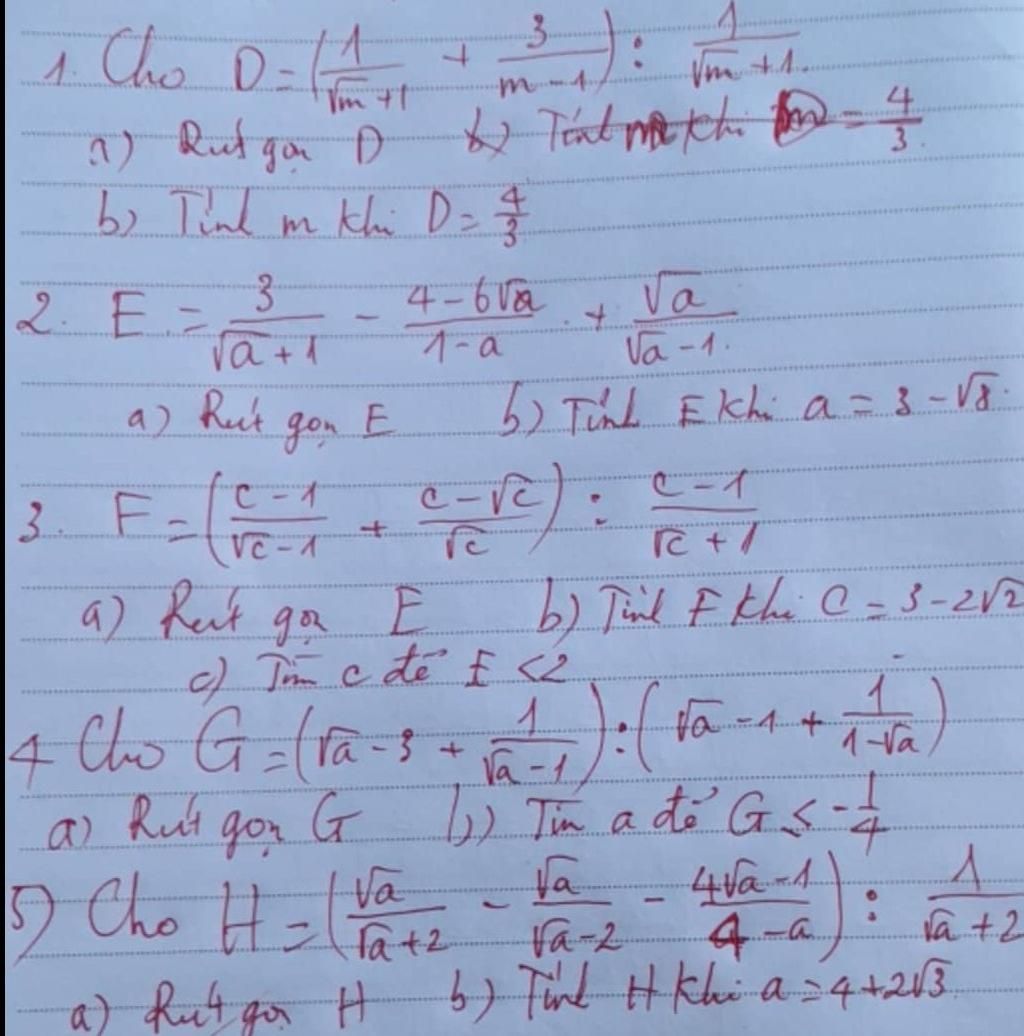 1. Cho D = (1/(√m+1) + 3/(m-1)) : 1/(√m+1).
a) Rút gọn D b) Tính m khi m = 4/3.
b) Tính m khi D = 4/3
2. E = 3/(√a+1) - (4-6√a)/(1-a) + √a/(√a-1).
a) Rút gọn E b) Tính E khi a = 3-√8.
3. F = ((c-1)/(√c-1) + (c-√c)/√c) : (c-1)/(√c+1)
a) Rút gọn E b) Tính F khi C = 3-2√2
c) Tìm c để F < 2
4 Cho G = (√a-3 + 1/(√a-1)) : (√a-1 + 1/(1-√a))
a) Rút gọn G b) Tìm a để G ≤ -1/4
5) Cho H = (√a/(√a+2) - √a/(√a-2) - (4√a-1)/(4-a)) : 1/(√a+2)
a) Rút gọn H b) Tính H khi a = 4+2√3.